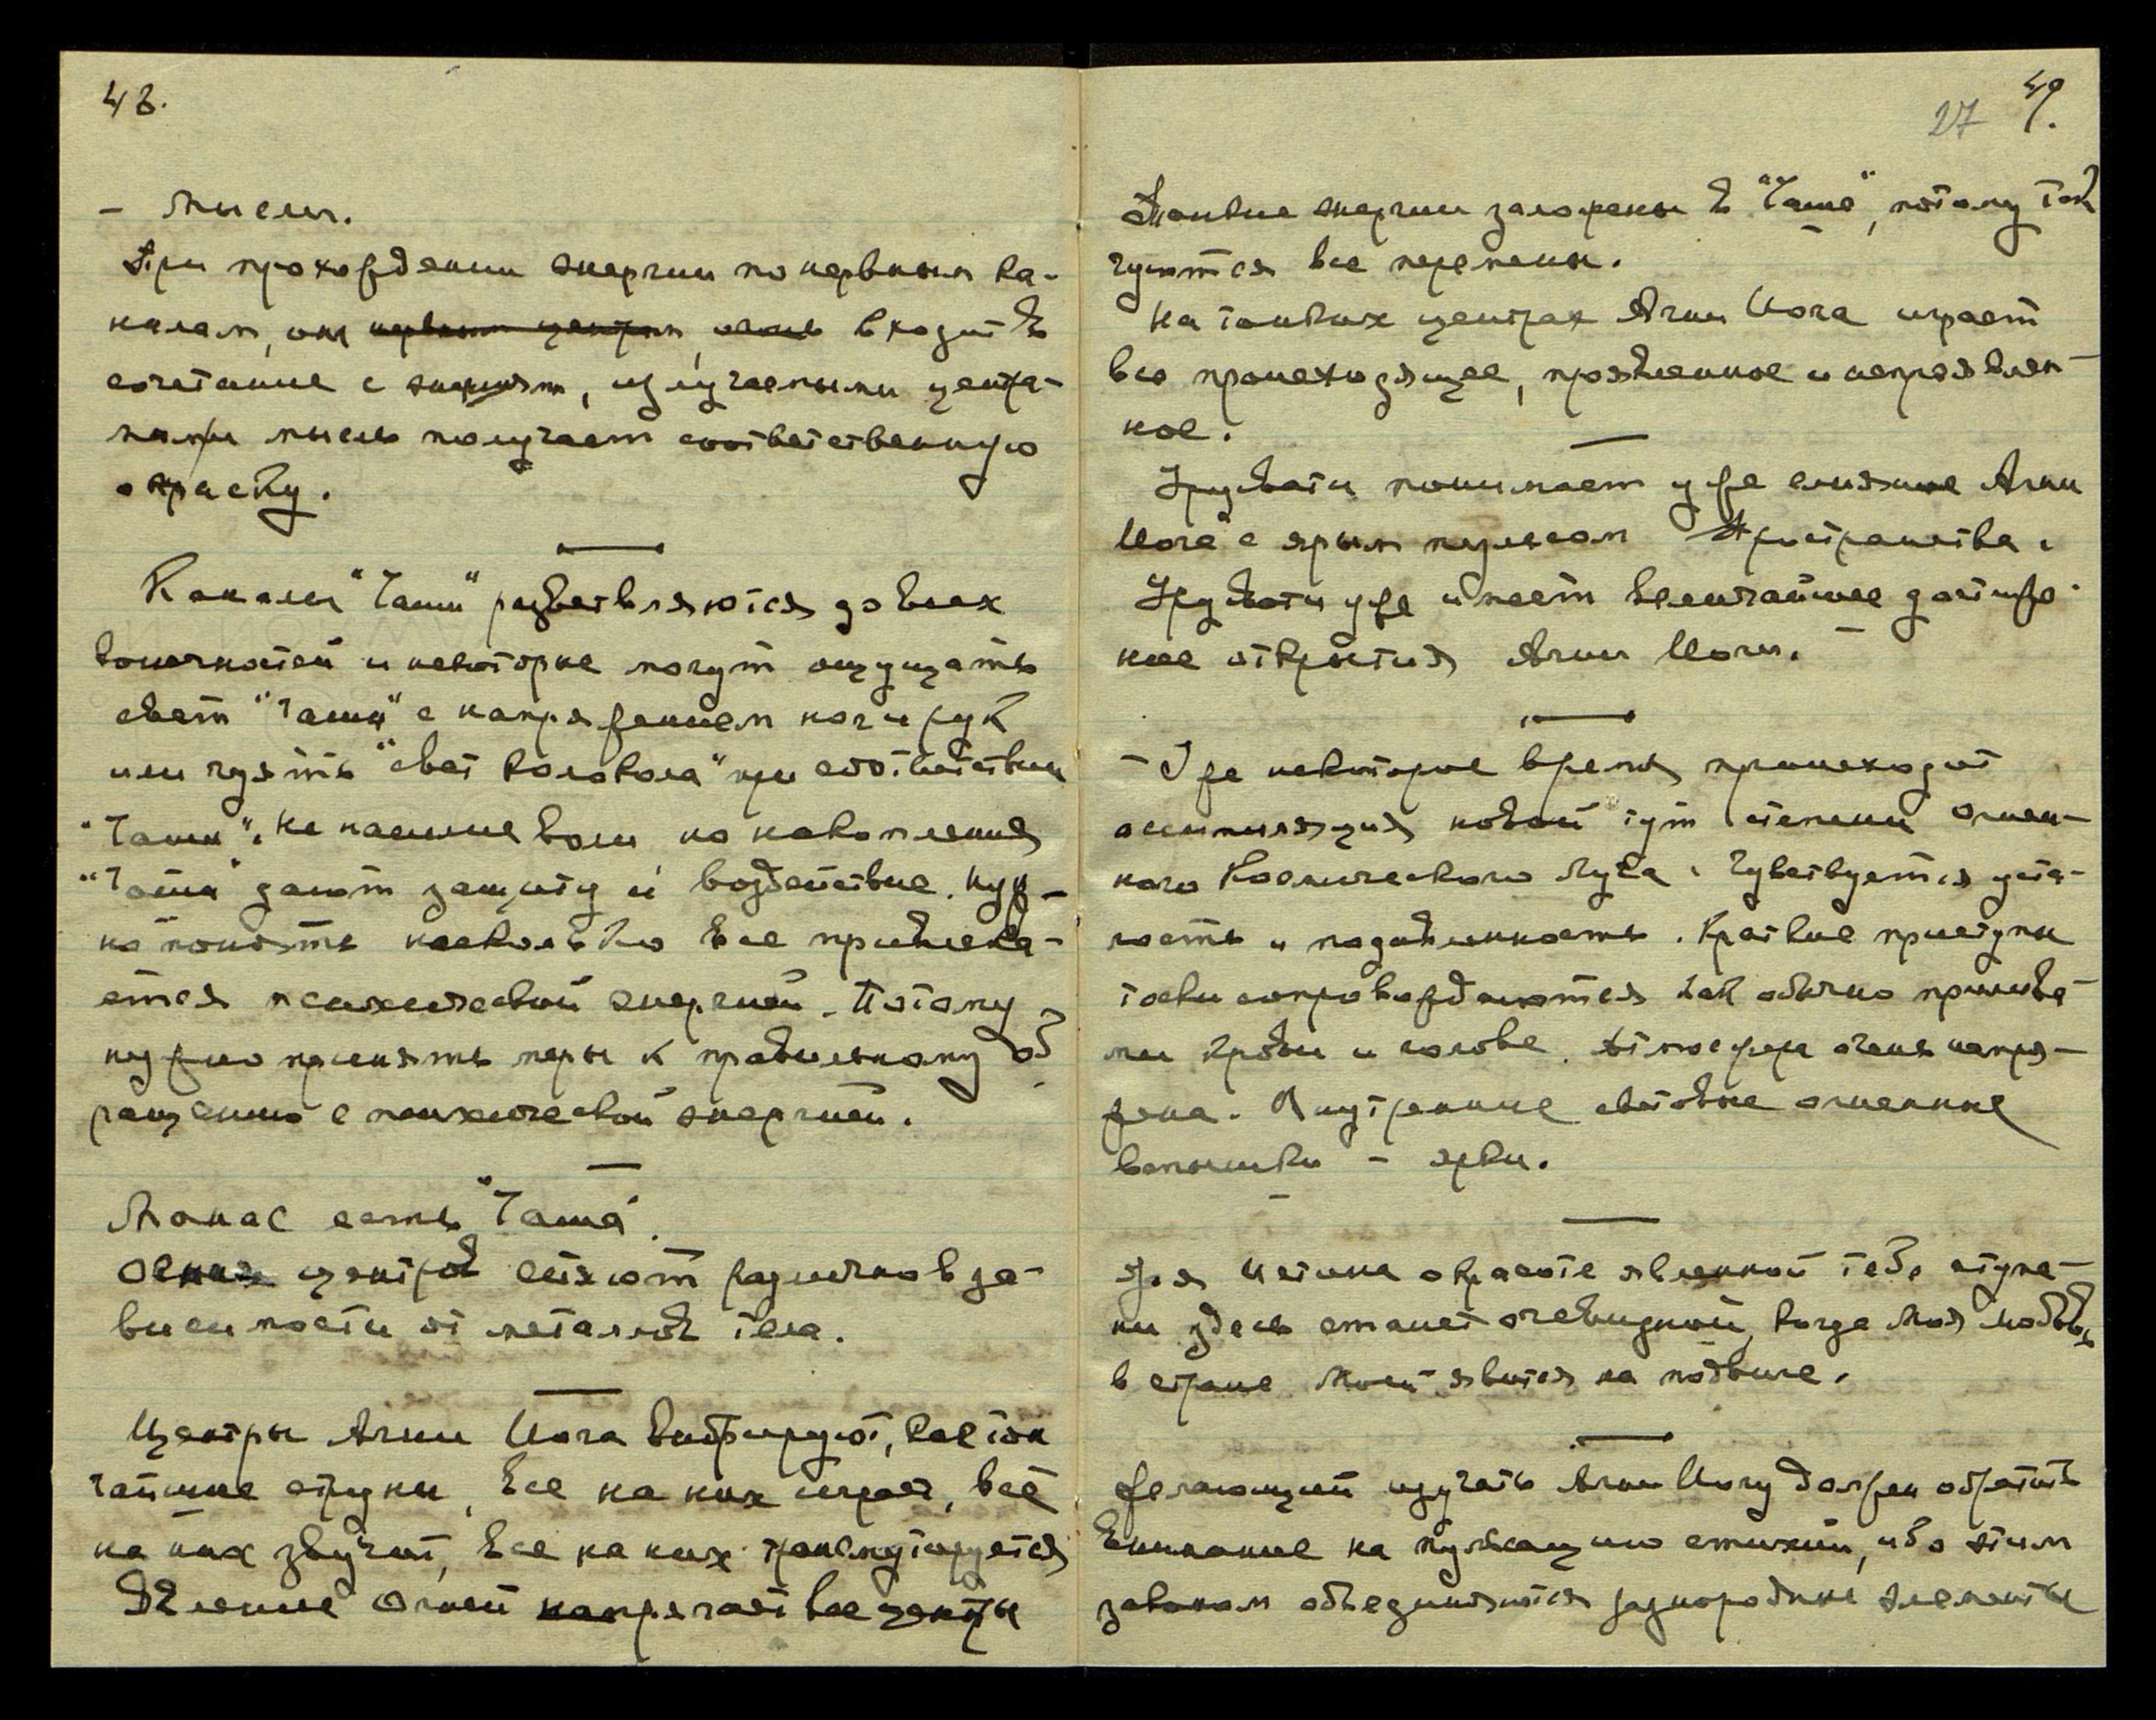 48.
- Мысли.
При прохождении энергии по нервным ка-
налам, она нервным центрам, огонь входит в
сочетание с энергиям, излучаемыми центра-
ми мысль получает соответственную
окраску.
Каналы "Чаши" разветвляются до всех
конечностей и некоторые могут ощущать
свет "Чаши" с напряжением ног и рук
или чуять "свет колокола" при соответствии
"Чаши". Не насилие воли, но накопления
"Чаши" дают защиту и воздействие. Нуж-
но понять насколько все привлека-
ется психической энергией. Потому
нужно принять меры к правильному об
ращению с психической энергией.
Манас есть "Чаша".
Огни центров сияют различно в за-
висимости от металлов тела.
Центры Агни Йога вибрируют, как тон
чайшие струны, все на них играет, всё
на них звучит, все на них трансмутируется
Явление Огней напрягает все центры
27 49.
Тонкие энергии заложены в "Чаше", потому так
чуются все перемены.
На тонких центрах Агни Йога играет
все происходящее, проявленное и непроявлен-
ное.
Урусвати понимает уже слияние Агни
Йога с ярым пульсом Пространства.
Урусвати уже имеет величайшее достиже-
ние открытия Агни Йоги.
- Уже некоторое время происходит
ассимиляция новой тут степени огнен-
ного Космического Луча. Чувствуется уста-
лость и подавленность. Краткие приступы
тоски сопровождаются как обычно прилива-
ми крови и голове. Атмосфера очень напря-
жена. Внутренние световые огненные
вспышки - ярки.
Ури Истина о красоте явленной тебе ступе-
ни здесь станет очевидной, когда Моя Любовь
в стране Моей явится на подвиге.
Желающий изучать Агни Йогу должен обратить
внимание на пульсацию стихий, ибо этим
законом объединяются разнородные элементы